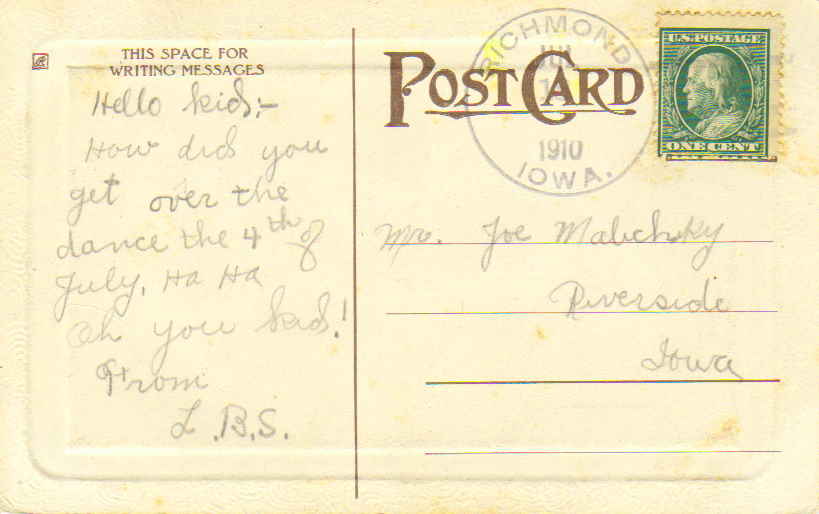 THIS SPACE FOR
WRITING MESSAGES
Hello kid:-
How did you
get over the
dance the 4th of
July, Ha Ha
Oh you kid!
From
L.B.S.
POST CARD
RICHMOND
JUL
1910
IOWA.
U.S. POSTAGE
ONE CENT
Mr. Joe
Riverside
Iowa